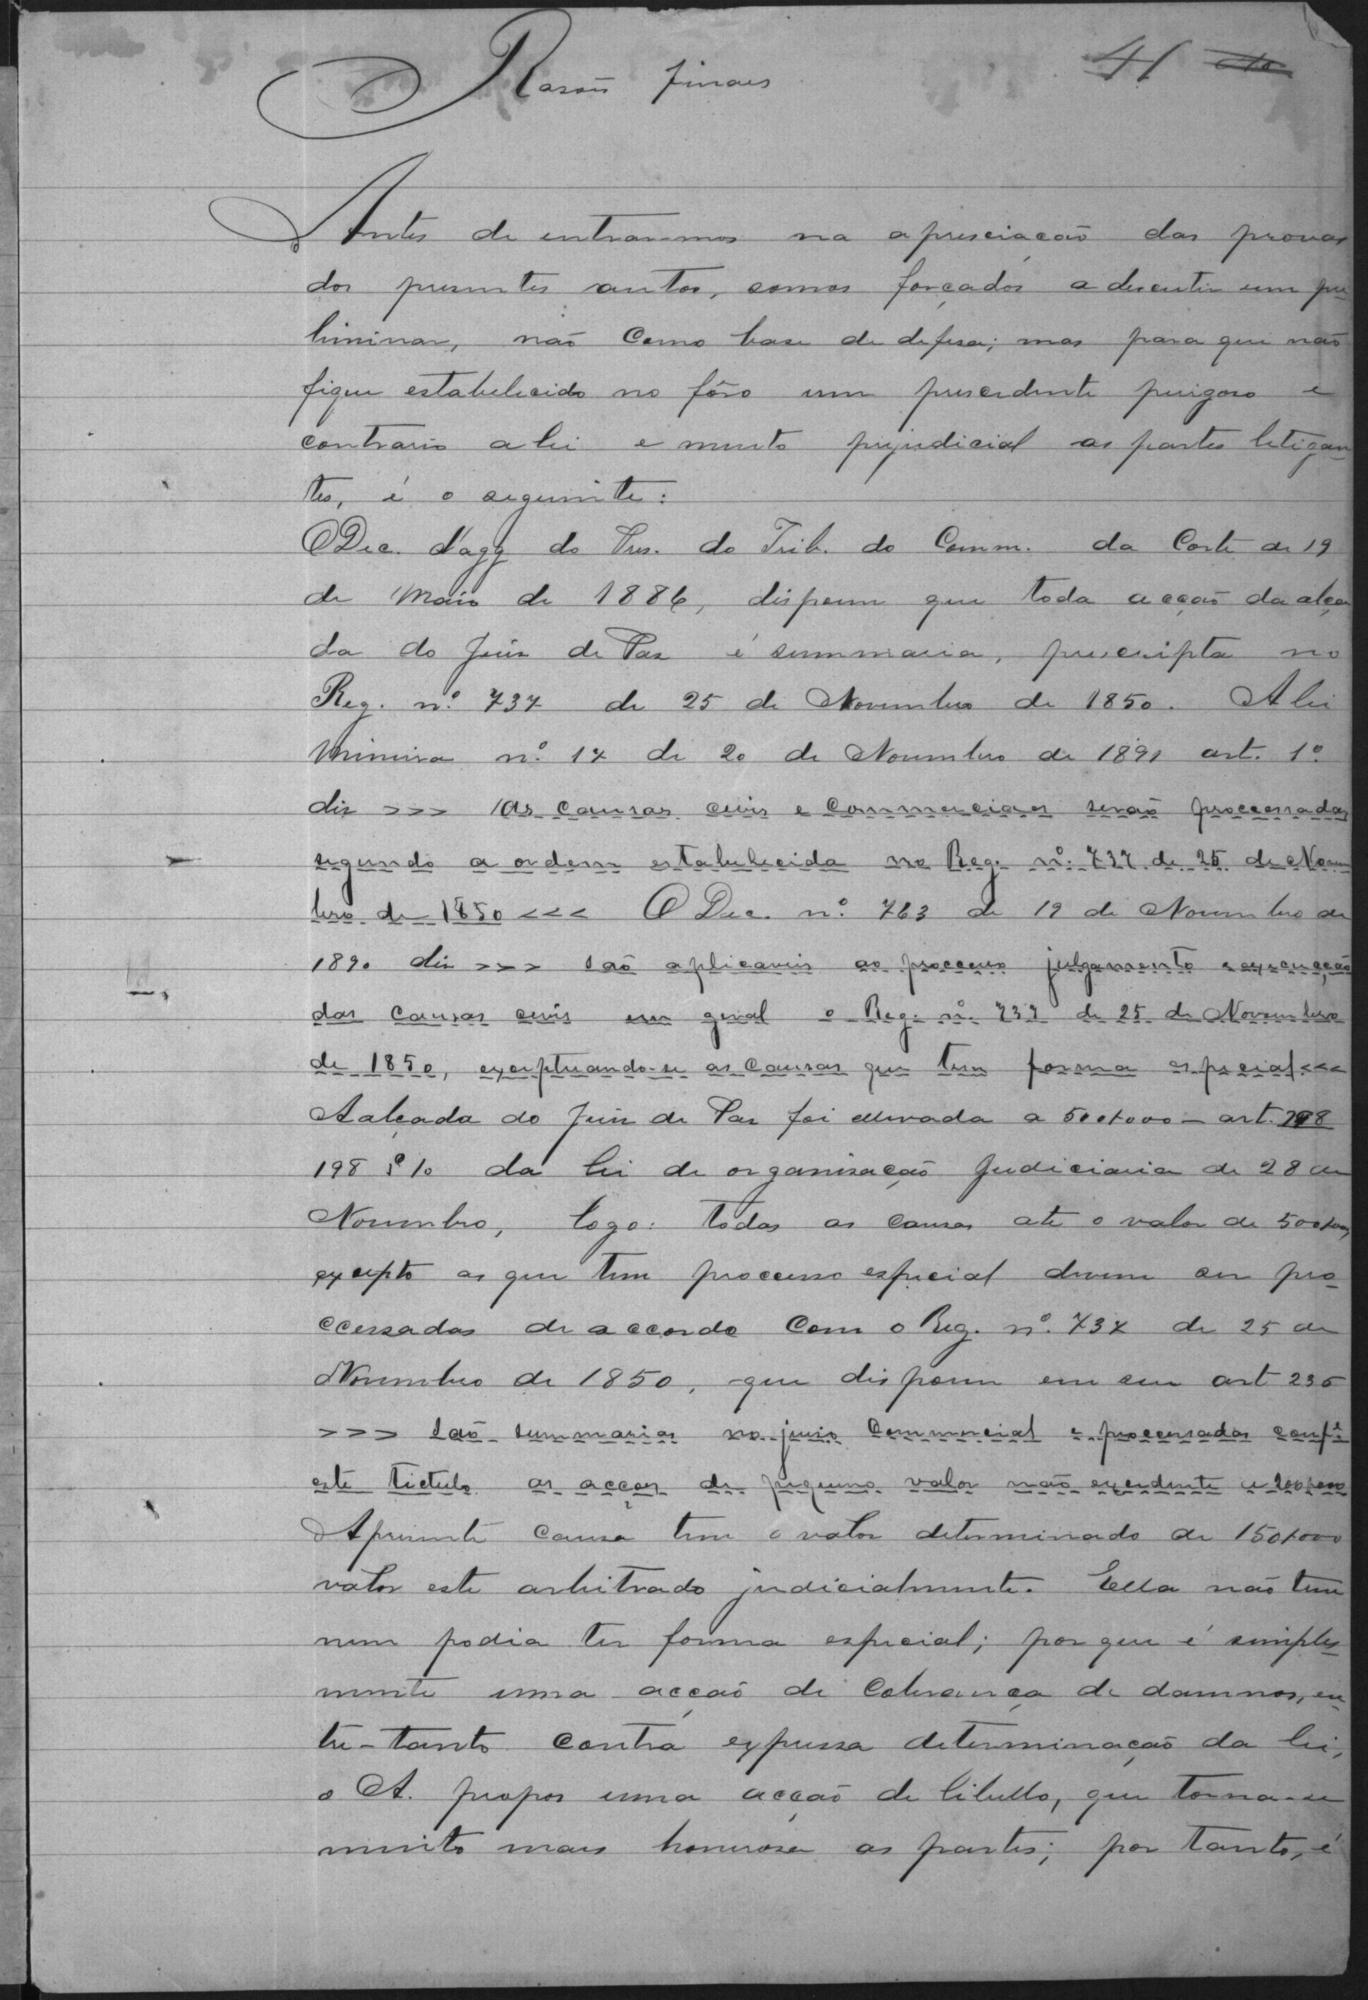 41
Rasões finaes
Antes de entrarmos na apresciacão das provas
dos presentes autos, somos forçados a descutir um pre
liminar, não como base de defesa; mas para que não
fique estabelecido no fôro um presedente perigoso e
contrario a lei e muito prejudicial as partes letigan
tes, é o seguinte:
O Dec. d'agg do Pres. do Trib. do Comm. da Corte de 19
de Maio de 1886, dispoem que toda acção da alça
da do Juis de Pas é summaria, prescripta no
Reg. nº. 737 de 25 de Novembro de 1850. A lei
Mineira nº. 17 de 20 de Novembro de 1891 art. 1º.
dis >>> As causas civis e commerciaes serão processadas
segundo a ordem estabelecida no Reg. nº. 737 de 25 de Novem
bro de 1850 <<< O Dec. nº. 763 de 19 de Novembro de
1890 dis >>> são aplicaveis ao processo julgamento e execução
das causas civis em geral o Reg. nº. 737 de 25 de Novembro
de 1850, exceptuando-se as causas que tem forma especial <<<
A alçada do Juis de Pas foi elevada a 500$000 — art. 198
198 § 1o da lei de organisação Judiciaria de 28 de
Novembro, logo: todas as causas até o valor de 500$000
excepto as que tem processo especial devem ser pro
ccessadas de accordo com o Reg. nº. 737 de 25 de
Novembro de 1850, que dispoem em seu art 236
>>> São summarias no juiso Commercial e processadas conf.e
este tictulo as acções de piqueno valor não excedente a 200$000
A presente causa tem o valor determinado de 150$000
valor este arbitrado judicialmente. Ella não tem
nem podia ter forma especial; por que é simples
mente uma acção de cobrança de damnos, en
tre-tanto contra expressa determinação da lei,
o A. propos uma acção de libello, que torna-se
muito mais honerosa as partes; por tanto, é